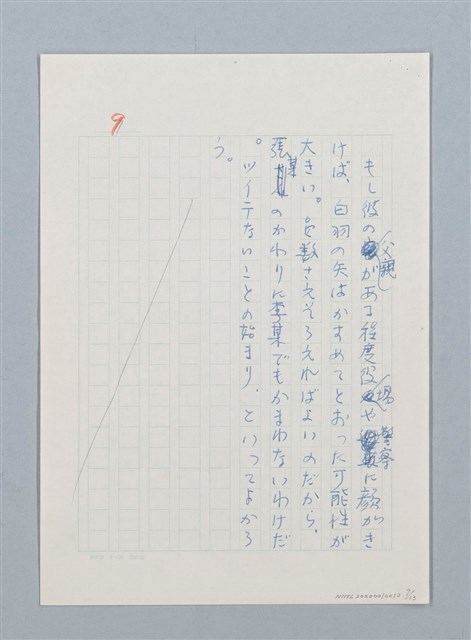 9
もし彼の父親がある程度役場や警察に顔がき
けば、白羽の矢はかすめてとおった可能性が
大きい。足数さえそろえればよいのだから、
張某のかわりに李某でもかまわないわけだ
。ツイテないことの始まり、といってよかろ
う。